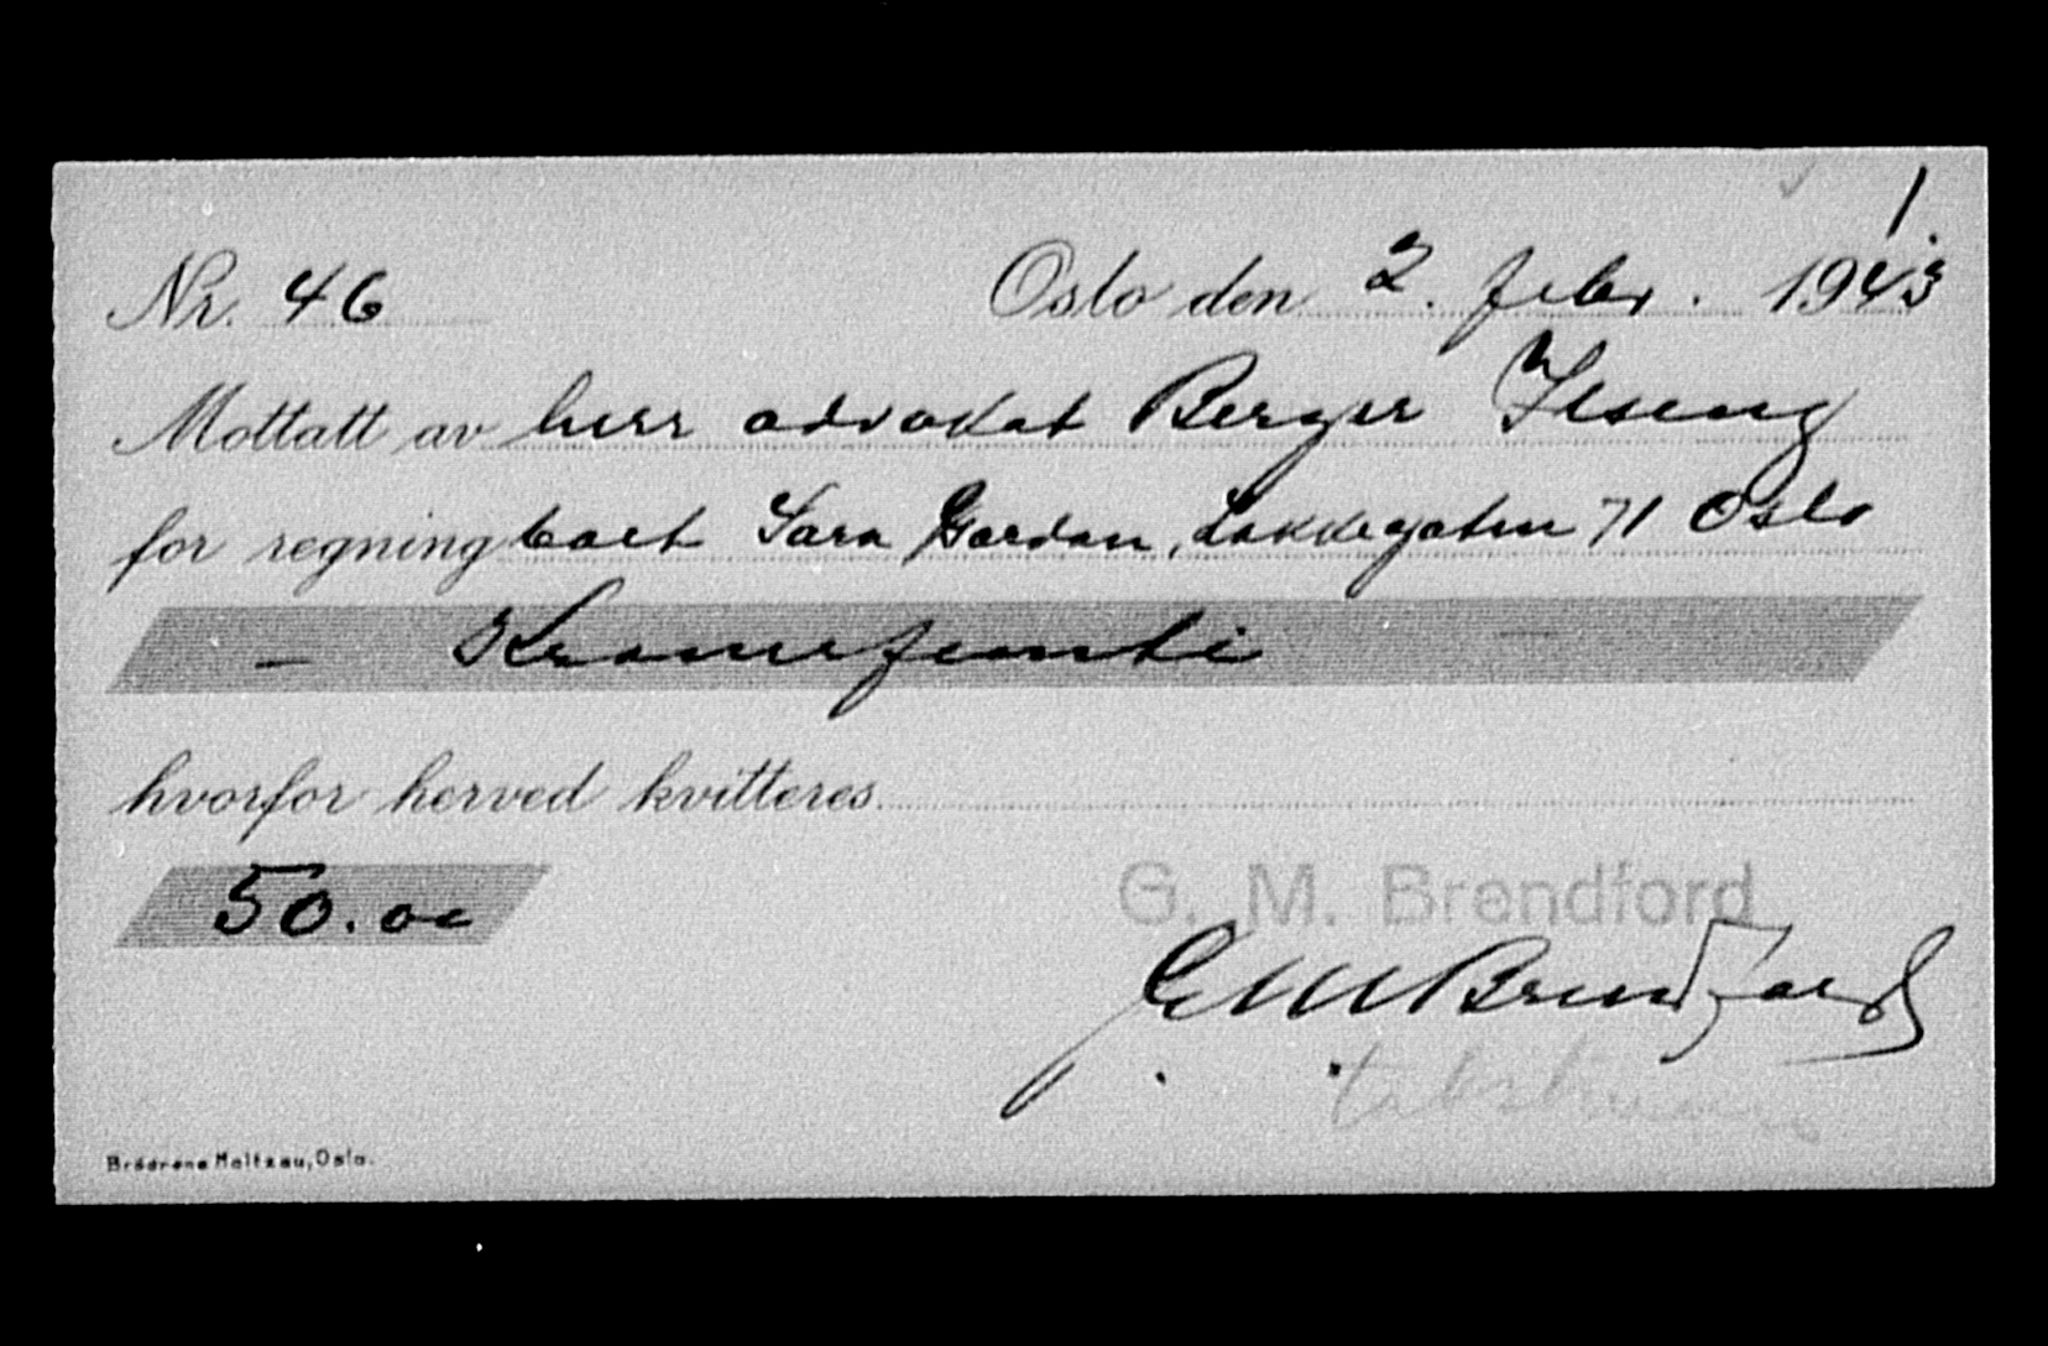 1
Nr. 46 Oslo den 2. febr. 1943
Mottatt av herr advokat Berger Ilseng
for regning boet Sara Gordon, Lakkegaten 71 Oslo
- Kronerfemti -
hvorfor herved kvitteres
50.00 G. M. Brendford
G M Brendford
Brødrene Maltzau, Oslo.